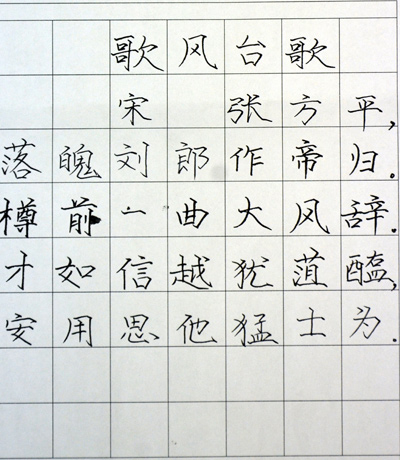 歌风台歌
宋 张方平，
落魄刘郎作帝归。
樽前一曲大风辞.
才如信越犹菹醢，
安用思他猛士为.